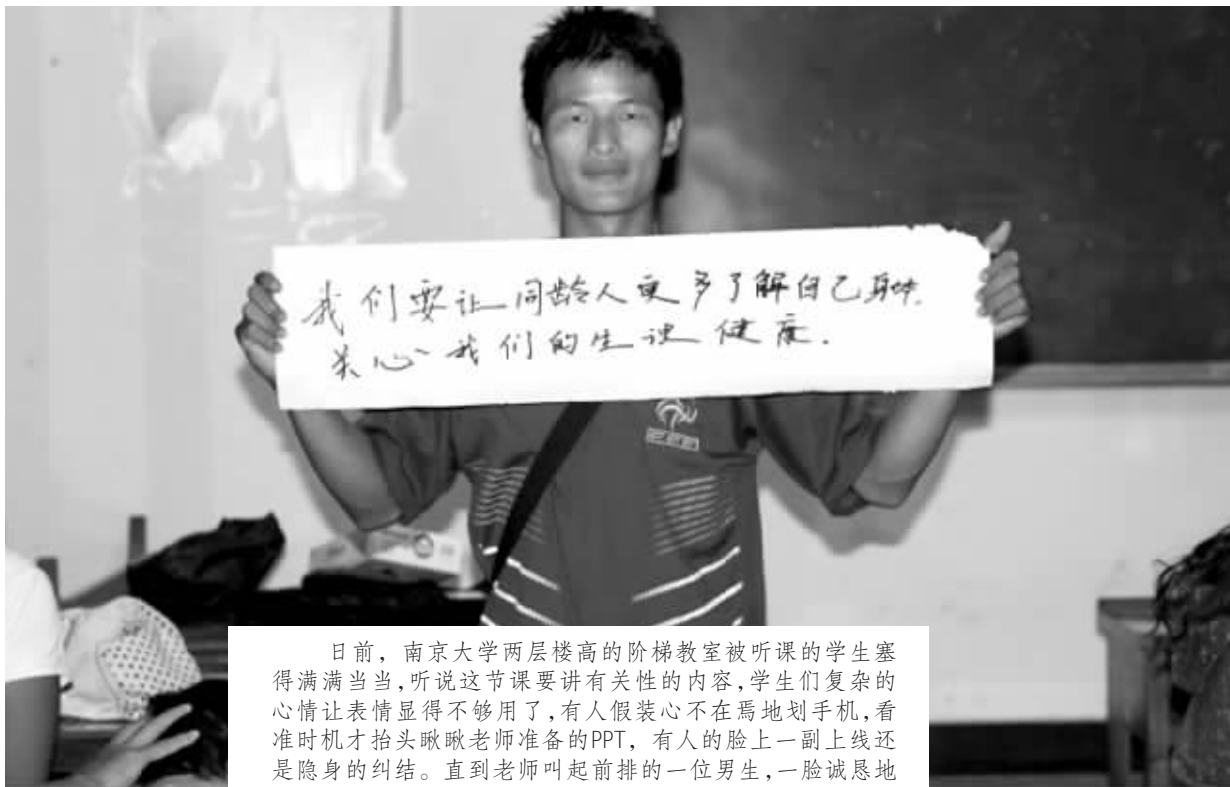 我们要让同龄人更多了解自己身体.
关心我们的生殖健康.
日前，南京大学两层楼高的阶梯教室被听课的学生塞
得满满当当,听说这节课要讲有关性的内容,学生们复杂的
心情让表情显得不够用了,有人假装心不在焉地划手机,看
准时机才抬头瞅瞅老师准备的PPT，有人的脸上一副上线还
是隐身的纠结。直到老师叫起前排的一位男生,一脸诚恳地